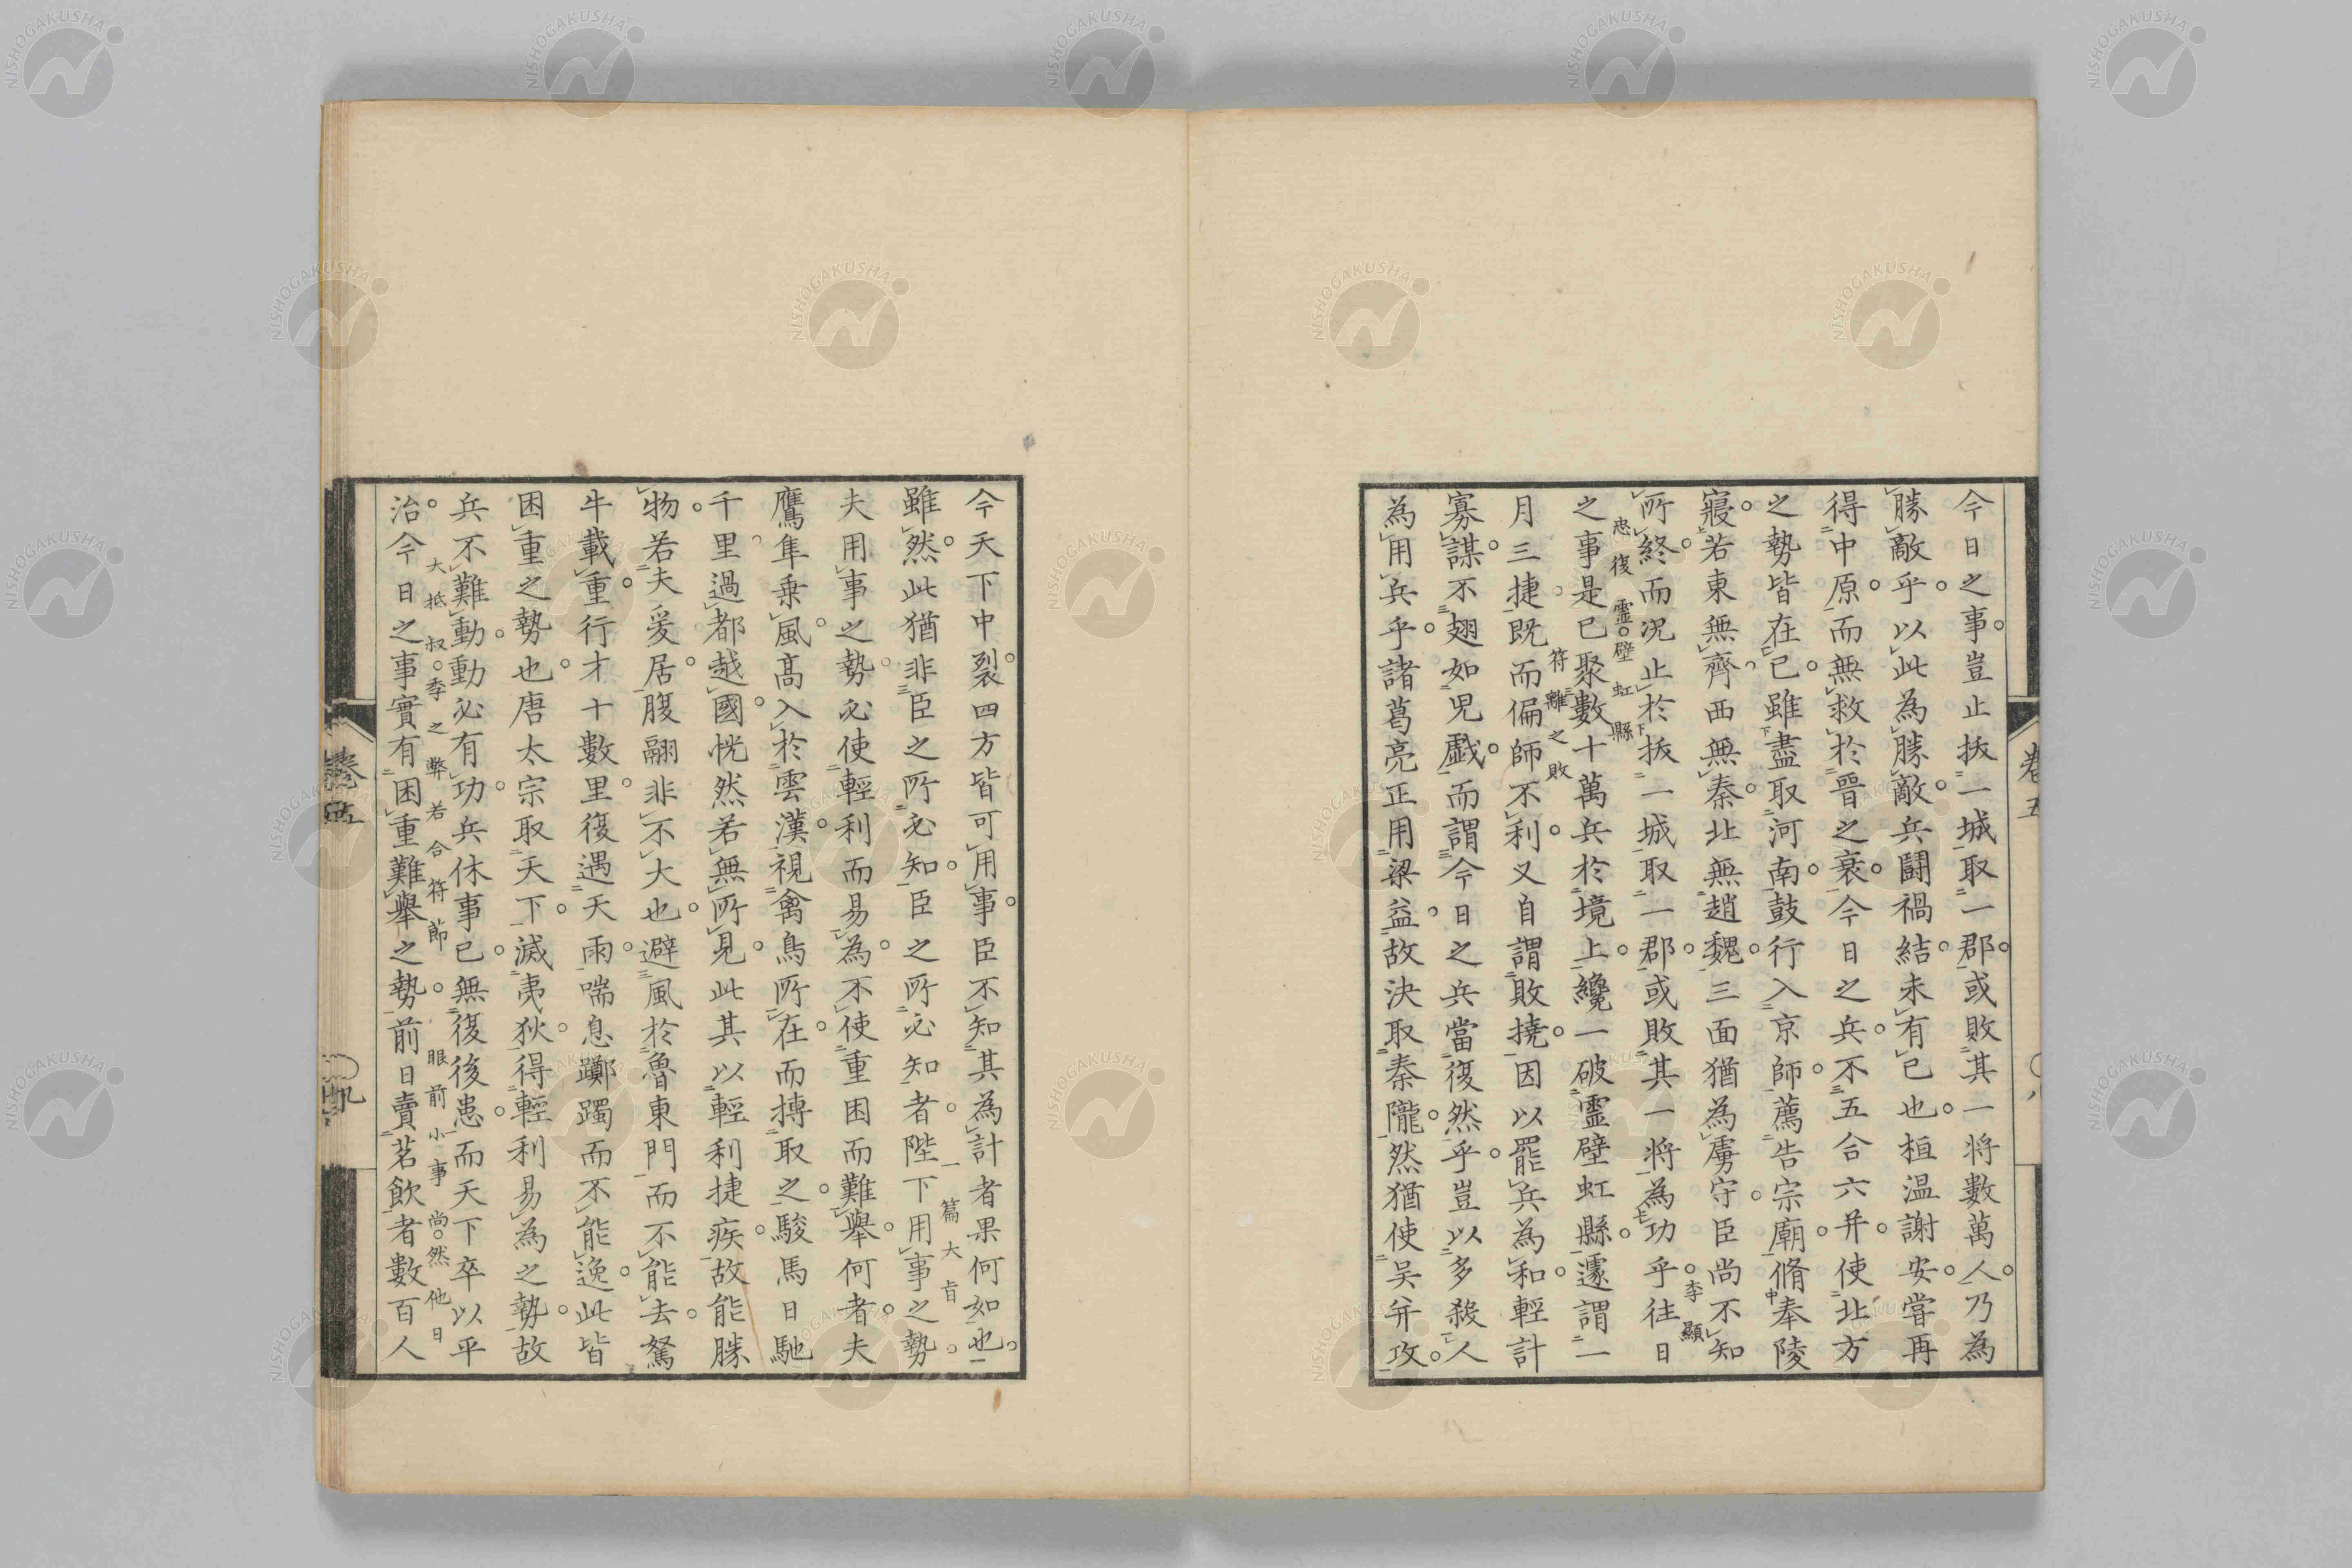 今日之事豈止拔一城取一郡或敗其一将數萬人乃為
勝敵乎以此為勝敵兵鬪禍結未有已也桓温謝安嘗再
得中原而無救於晉之衰今日之兵不五合六并使北方
之勢皆在已雖盡取河南鼓行入京師薦告宗廟脩奉陵
寢若東無齊西無秦北無趙魏三面猶為虜守臣尚不知
所終而况止於拔一城取一郡或敗其一将為功乎往日
李顯
忠復靈壁虹縣
之事是已聚數十萬兵於境上纔一破靈壁虹縣遽謂一
符離之敗
月三捷既而偏師不利又自謂敗撓因以罷兵為和輕計
寡謀不翅如児戯而謂今日之兵當復然乎豈以多殺人
為用兵乎諸葛亮正用梁益故決取秦隴然猶使吴并攻
卷五
八
今天下中裂四方皆可用事臣不知其為計者果何如也
一篇大旨
雖然此猶非臣之所必知臣之所必知者陛下用事之勢
夫用事之勢必使輕利而易為不使重困而難舉何者夫
鷹隼乗風高入於雲漢視禽鳥所在而搏取之駿馬日馳
千里過都越國恍然若無所見此其以輕利捷疾故能勝
物若夫爰居腹翮非不大也避風於魯東門而不能去駑
牛載重行才十數里復遇天雨喘息躑躅而不能逸此皆
困重之勢也唐太宗取天下滅夷狄得輕利易為之勢故
兵不難動動必有功兵休事已無復後患而天下卒以平
大抵叔季之弊若合符節眼前小事尚然他日
治今日之事實有困重難舉之勢前日賣茗飲者數百人
卷五
九
NISHOGAKUSHA